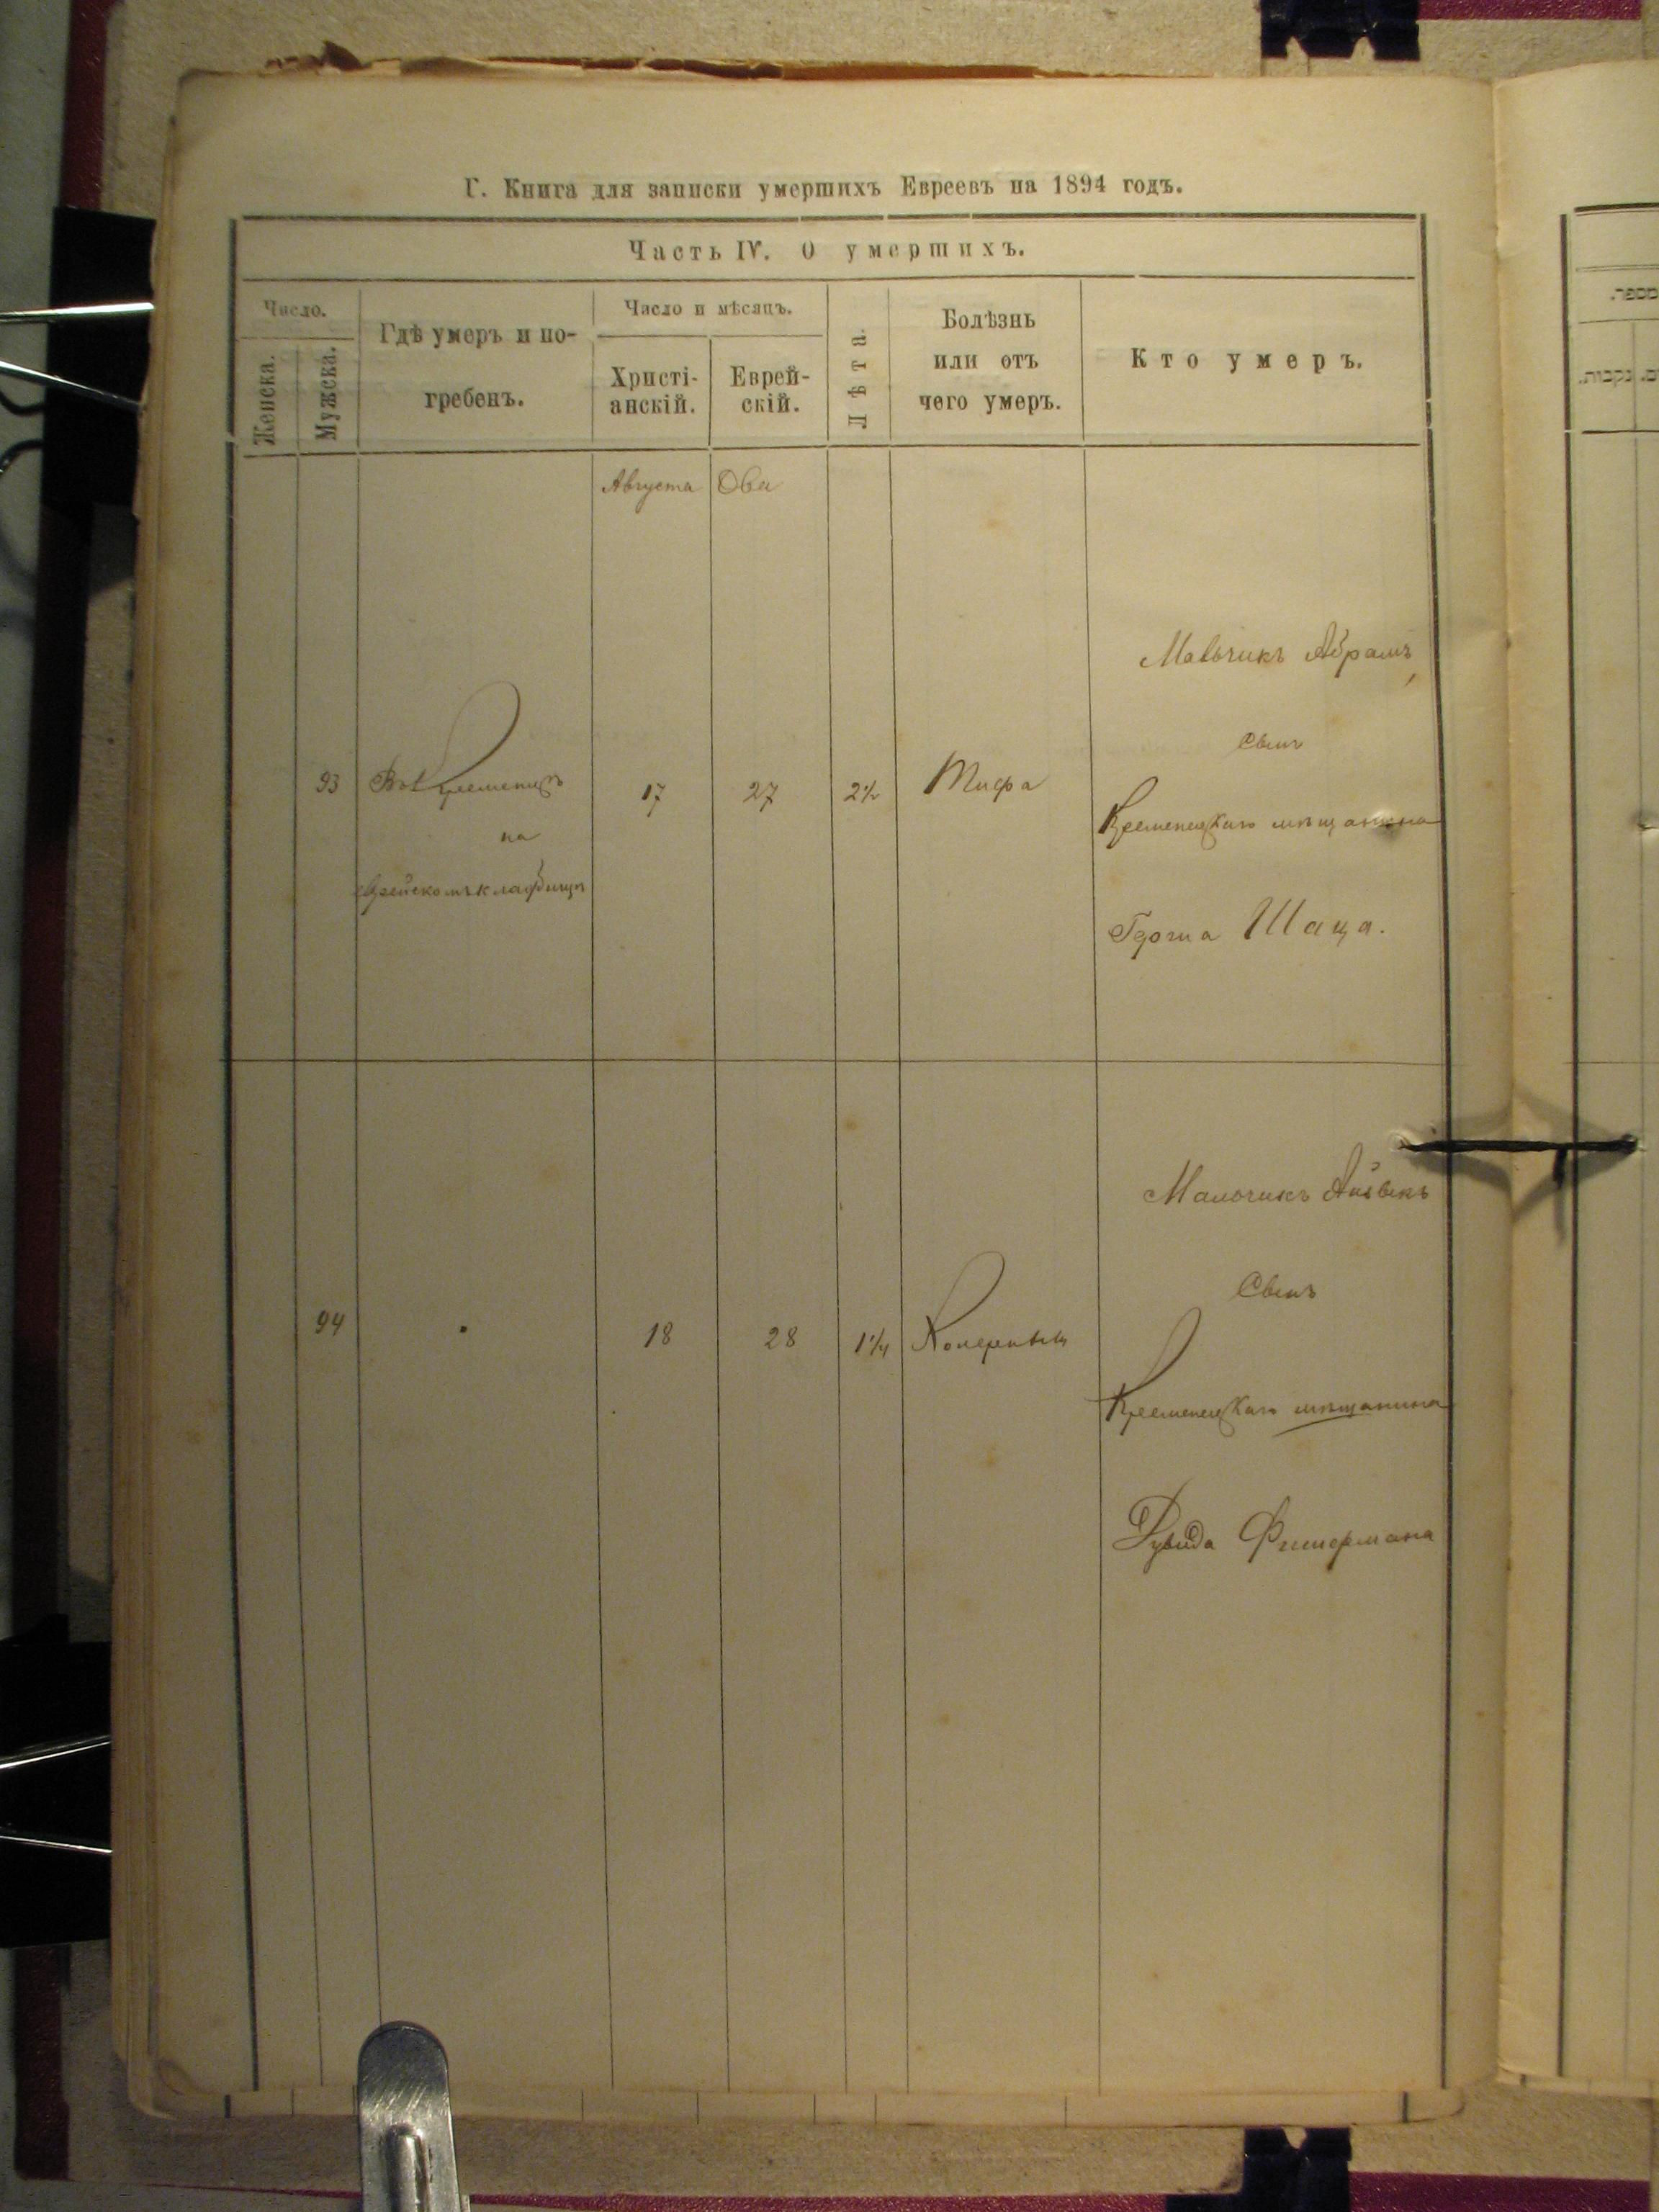 Г. Книга для записки умершихъ Евреевъ на 1894 годъ.
Часть IV. О умершихъ.
Число.
Женска.
Мужска.
Гдѣ умеръ и по-
гребенъ.
Число и мѣсяцъ.
Христі-
анскій.
Еврей-
скій.
Лѣта.
Болѣзнь
или отъ
чего умеръ.
Кто умеръ.
Августа
Ова
Мальчикъ Абрамъ,
Сынъ
93
Въ Кременцѣ
на
еврейскомъ кладбищѣ
17
27
2½
Тифа
Кременецкаго мѣщанина
Гершка Шаца.
Мальчикъ Айзыкъ
Сынъ
94
18
28
1¼
Кременецкаго мѣщанина
Фишермана
מספר.
נקבות.